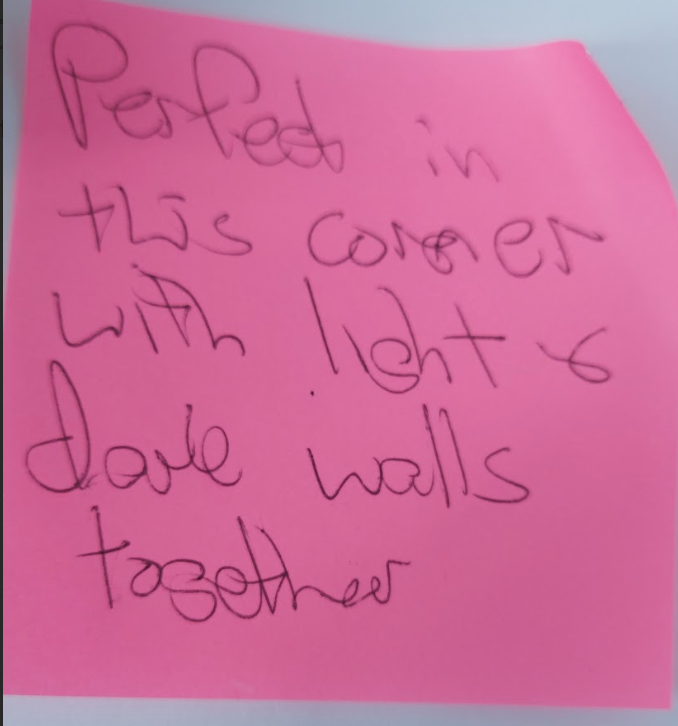 Perfect in
this corner
with light &
dark walls
together